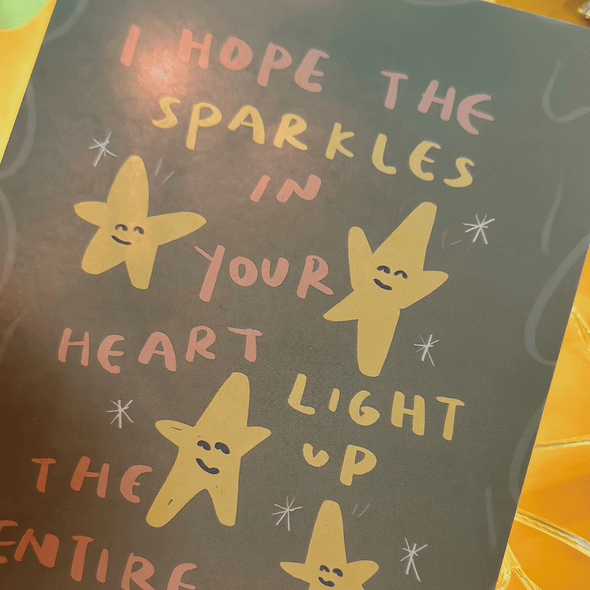 I HOPE THE
SPARKLES
IN
YOUR
HEART
LIGHT
UP
THE
ENTIRE